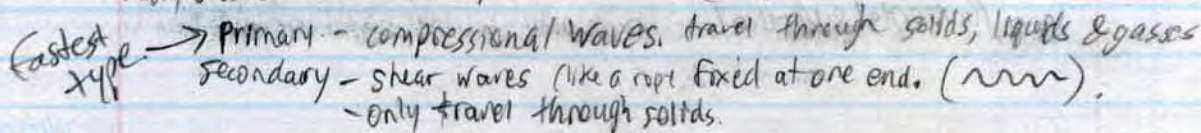 Fastest type → Primary - compressional waves. travel through solids, liquids & gasses
Secondary - shear waves (like a rope fixed at one end. (~~~).
- only travel through solids.